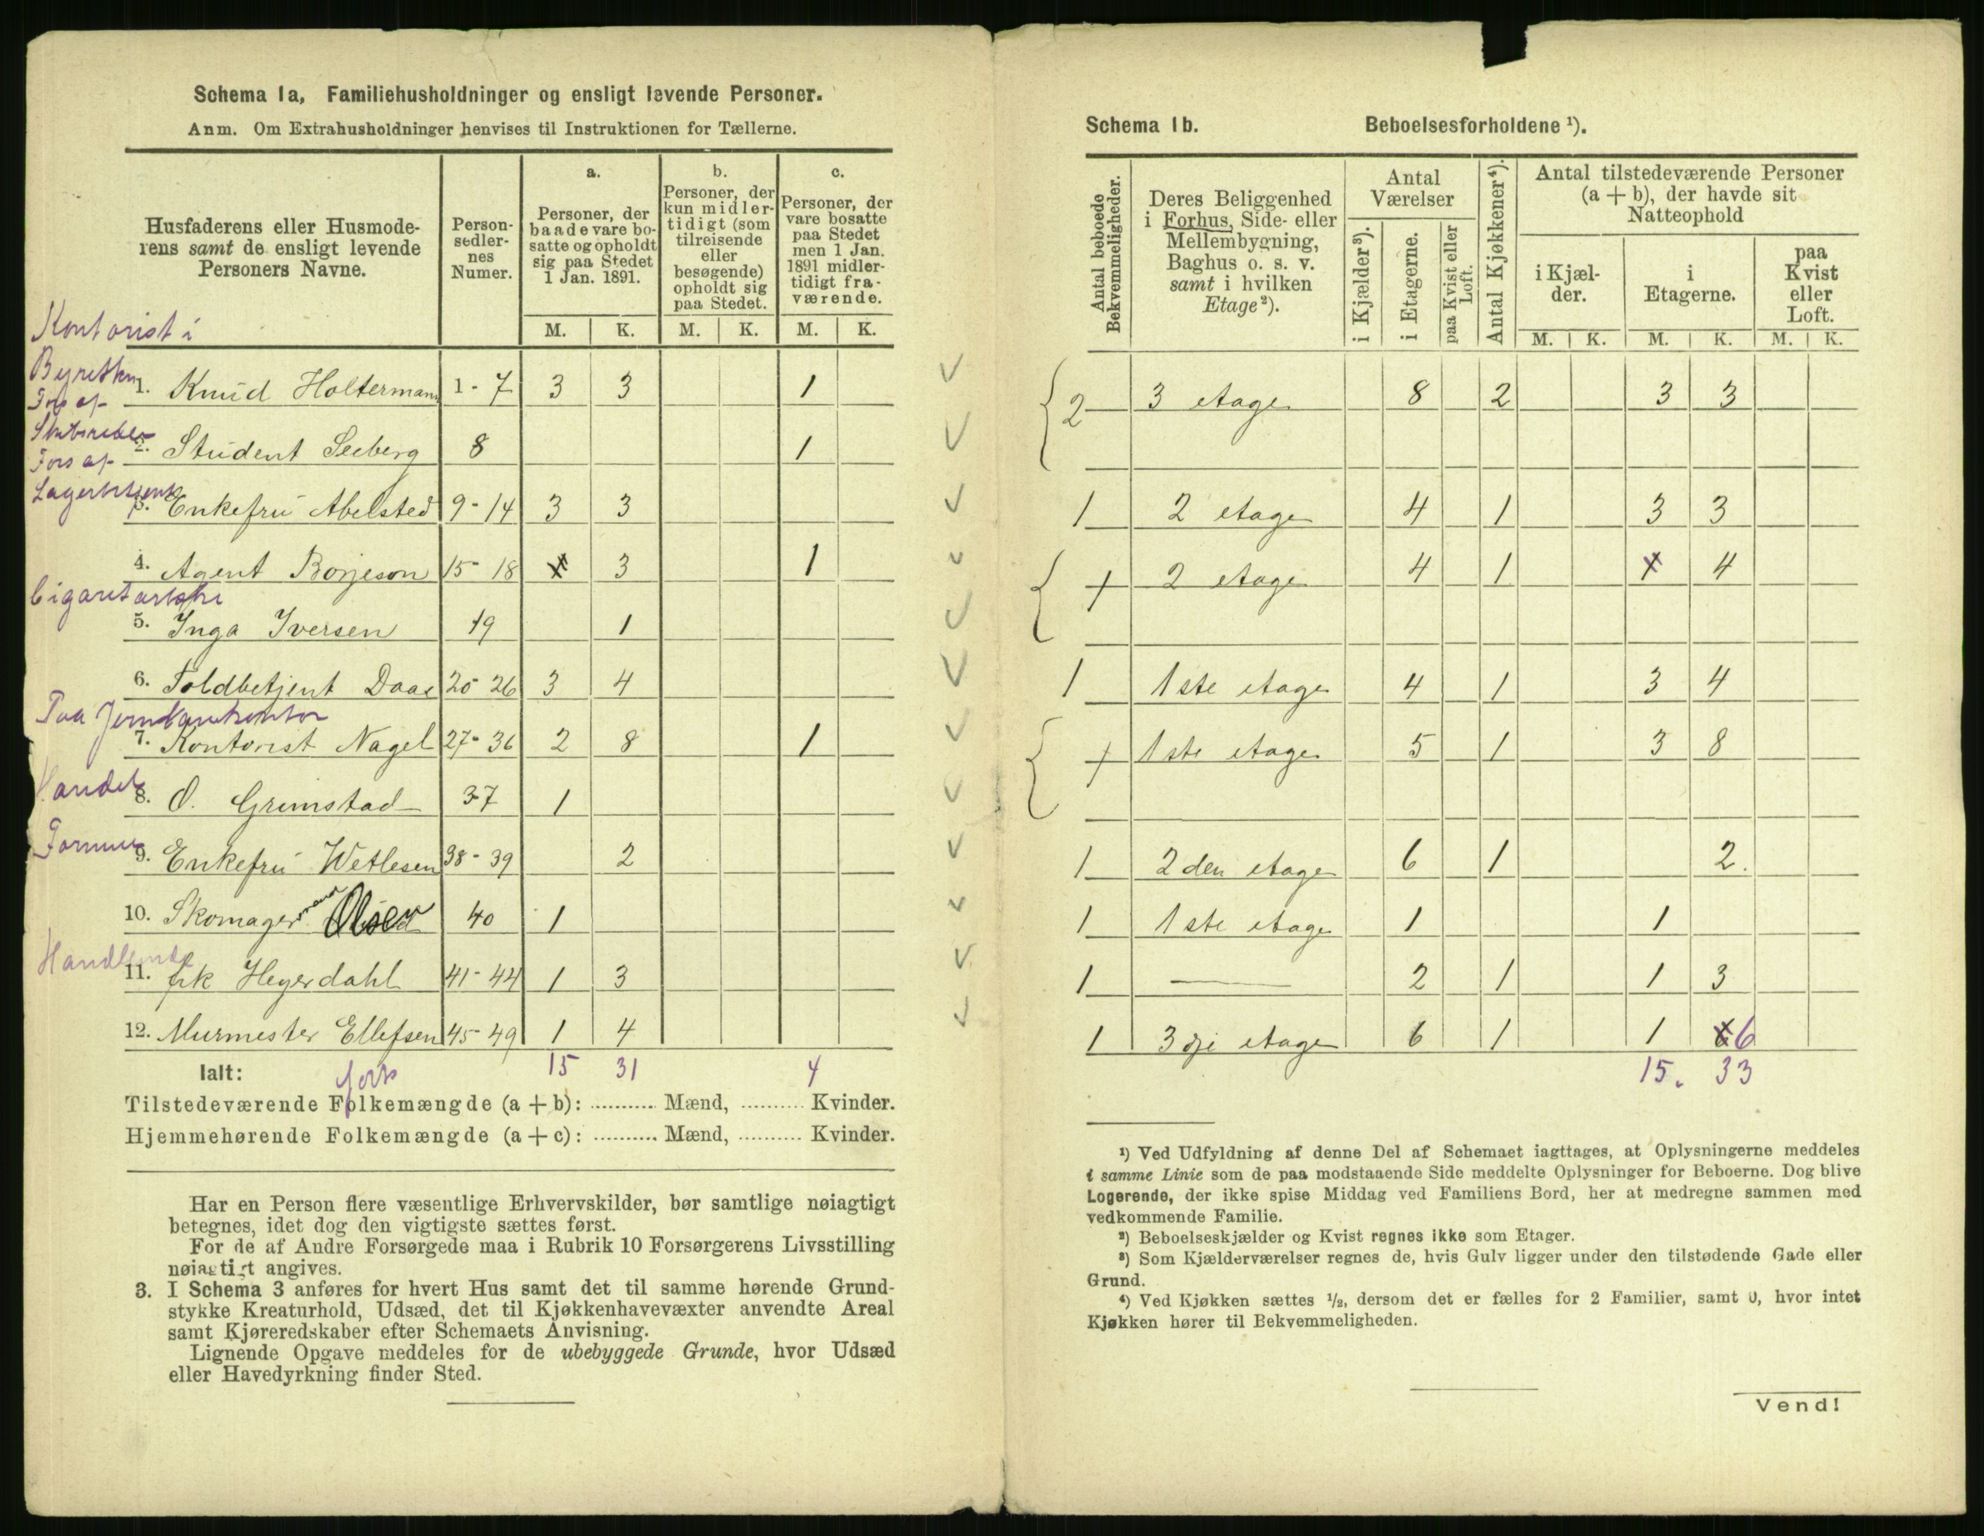 Schema 1a, Familiehusholdninger og ensligt levende Personer.
Anm. Om Extrahusholdninger henvises til Instruktionen for Tællerne.
Husfaderens eller Husmoderens samt de ensligt levende Personers Navne.
Personsedlernes Numer.
a. Personer, der baade vare bosatte og opholdt sig paa Stedet 1 Jan. 1891.
b. Personer, der kun midlertidigt (som tilreisende eller besøgende) opholdt sig paa Stedet.
c. Personer, der vare bosatte paa Stedet men 1 Jan. 1891 midlertidigt fraværende.
M. K. M. K. M. K.
Kontorist i
Byretten
1. Knud Holtermann 1-7 3 3 1
Fors af
2. Student Seeberg 8 1
Fors af
Lagerbetjent
3. Enkefru Abelsted 9-14 3 3
4. Agent Borjeson 15-18 x 3 1
Cigaretarbske
5. Inga Iversen 19 1
6. Toldbetjent Daae 20-26 3 4
Paa Jernbanekontor
7. Kontorist Nagel 27-36 2 8 1
Handel
8. O. Grimstad 37 1
Formue
9. Enkefru Wetlesen 38-39 2
10. Skomager Olsen 40 1
Handlende
11. frk Heyerdahl 41-44 1 3
12. Murmester Ellefsen 45-49 1 4
Ialt: 15 31 4
Tilstedeværende Folkemængde (a + b): .......... Mænd, .......... Kvinder.
Hjemmehørende Folkemængde (a + c): .......... Mænd, .......... Kvinder.
Har en Person flere væsentlige Erhvervskilder, bør samtlige nøiagtigt
betegnes, idet dog den vigtigste sættes først.
For de af Andre Forsørgede maa i Rubrik 10 Forsørgerens Livsstilling
nøiagtigt angives.
3. I Schema 3 anføres for hvert Hus samt det til samme hørende Grund-
stykke Kreaturhold, Udsæd, det til Kjøkkenhavevæxter anvendte Areal
samt Kjøreredskaber efter Schemaets Anvisning.
Lignende Opgave meddeles for de ubebyggede Grunde, hvor Udsæd
eller Havedyrkning finder Sted.
Schema 1b. Beboelsesforholdene ¹).
Antal beboede Bekvemmeligheder.
Deres Beliggenhed i Forhus, Side- eller Mellembygning, Baghus o. s. v. samt i hvilken Etage ²).
Antal Værelser
i Kjælder ³).
i Etagerne.
paa Kvist eller Loft.
Antal Kjøkkener ⁴).
Antal tilstedeværende Personer (a + b), der havde sit Natteophold
i Kjælder.
i Etagerne.
paa Kvist eller Loft.
M. K. M. K. M. K.
2 3 etage 8 2 3 3
1 2 etage 4 1 3 3
+ 2 etage 4 1 x 4
1 1ste etage 4 1 3 4
+ 1ste etage 5 1 3 8
1 2den etage 6 1 2
1 1ste etage 1 1
1 — 2 1 1 3
1 3dje etage 6 1 1 6
15. 33
¹) Ved Udfyldning af denne Del af Schemaet iagttages, at Oplysningerne meddeles
i samme Linie som de paa modstaaende Side meddelte Oplysninger for Beboerne. Dog blive
Logerende, der ikke spise Middag ved Familiens Bord, her at medregne sammen med
vedkommende Familie.
²) Beboelseskjælder og Kvist regnes ikke som Etager.
³) Som Kjælderværelser regnes de, hvis Gulv ligger under den tilstødende Gade eller
Grund.
⁴) Ved Kjøkken sættes ½, dersom det er fælles for 2 Familier, samt 0, hvor intet
Kjøkken hører til Bekvemmeligheden.
Vend!